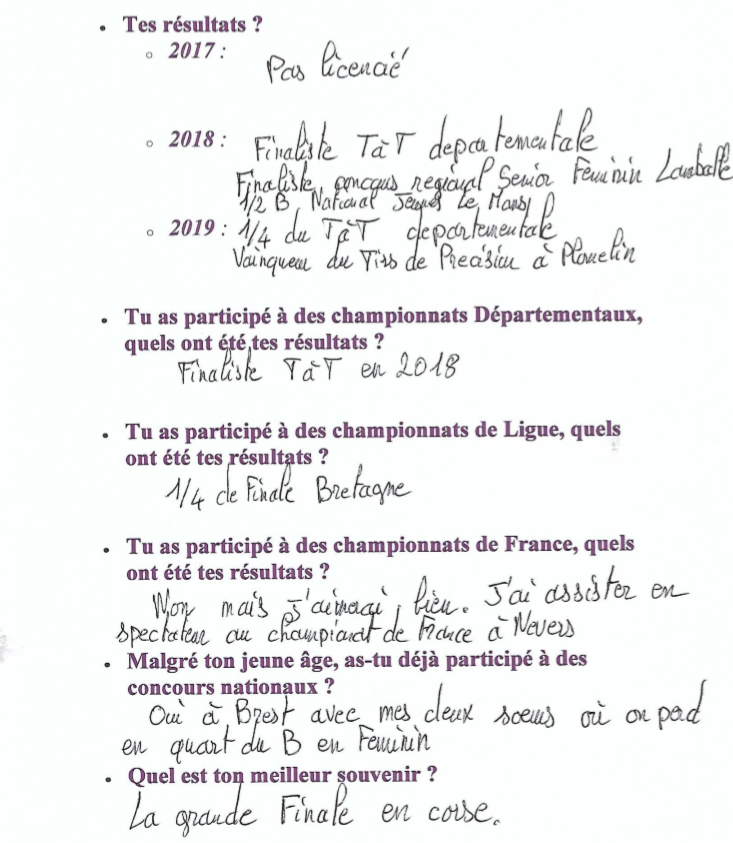 • Tes résultats ?
○ 2017 :
Pas licencié
○ 2018 :
Finaliste TàT departementale
Finaliste concours regional Senior Feminin Lamballe
1/2 B National Jeunes Le Mans
○ 2019 : 1/4 du TàT departementale
Vainqueur du Tirs de Precision à Plomelin
• Tu as participé à des championnats Départementaux,
quels ont été tes résultats ?
Finaliste TàT en 2018
• Tu as participé à des championnats de Ligue, quels
ont été tes résultats ?
1/4 de Finale Bretagne
• Tu as participé à des championnats de France, quels
ont été tes résultats ?
Non mais j'aimerai bien. J'ai assister en
spectateur au championat de France à Nevers
• Malgré ton jeune âge, as-tu déjà participé à des
concours nationaux ?
Oui à Brest avec mes deux soeurs où on perd
en quart du B en Feminin
• Quel est ton meilleur souvenir ?
La grande Finale en corse.